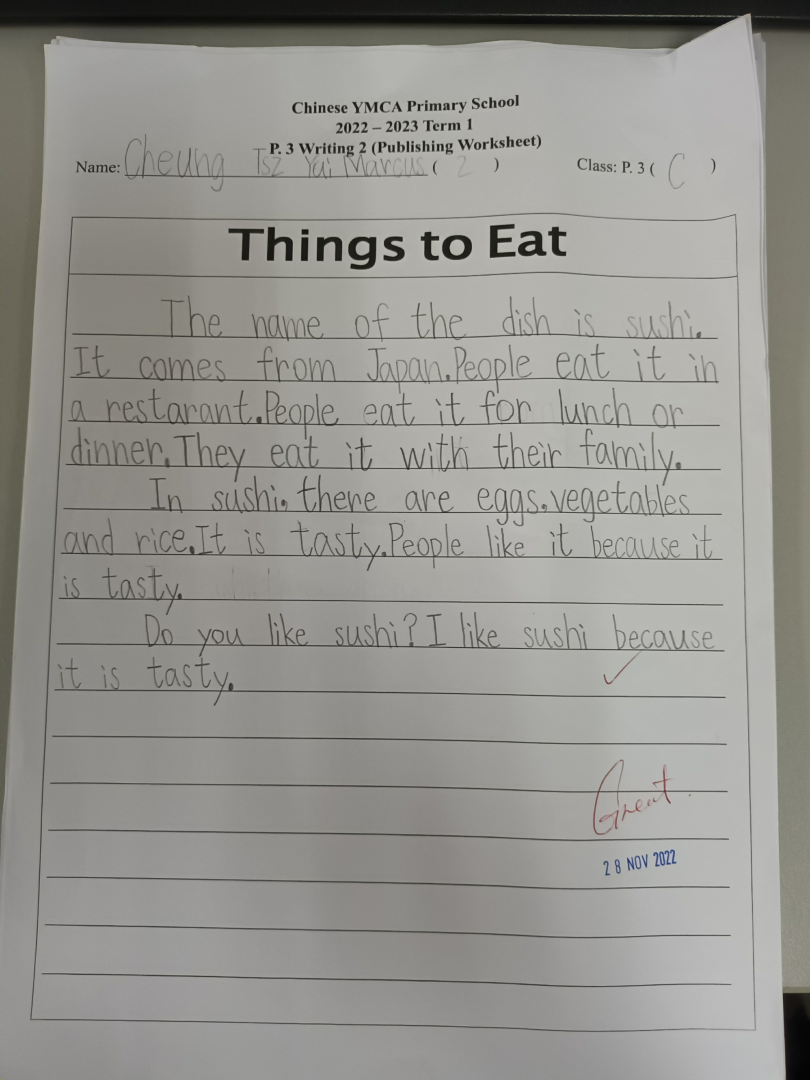 Chinese YMCA Primary School
2022 – 2023 Term 1
P. 3 Writing 2 (Publishing Worksheet)
Name: Cheung Tsz Yui Marcus ( 2 ) Class: P. 3 ( C )
Things to Eat
The name of the dish is sushi.
It comes from Japan.People eat it in
a restarant.People eat it for lunch or
dinner.They eat it with their family.
In sushi. there are eggs.vegetables
and rice.It is tasty.People like it because it
is tasty.
Do you like sushi? I like sushi because
it is tasty.
Great.
28 NOV 2022